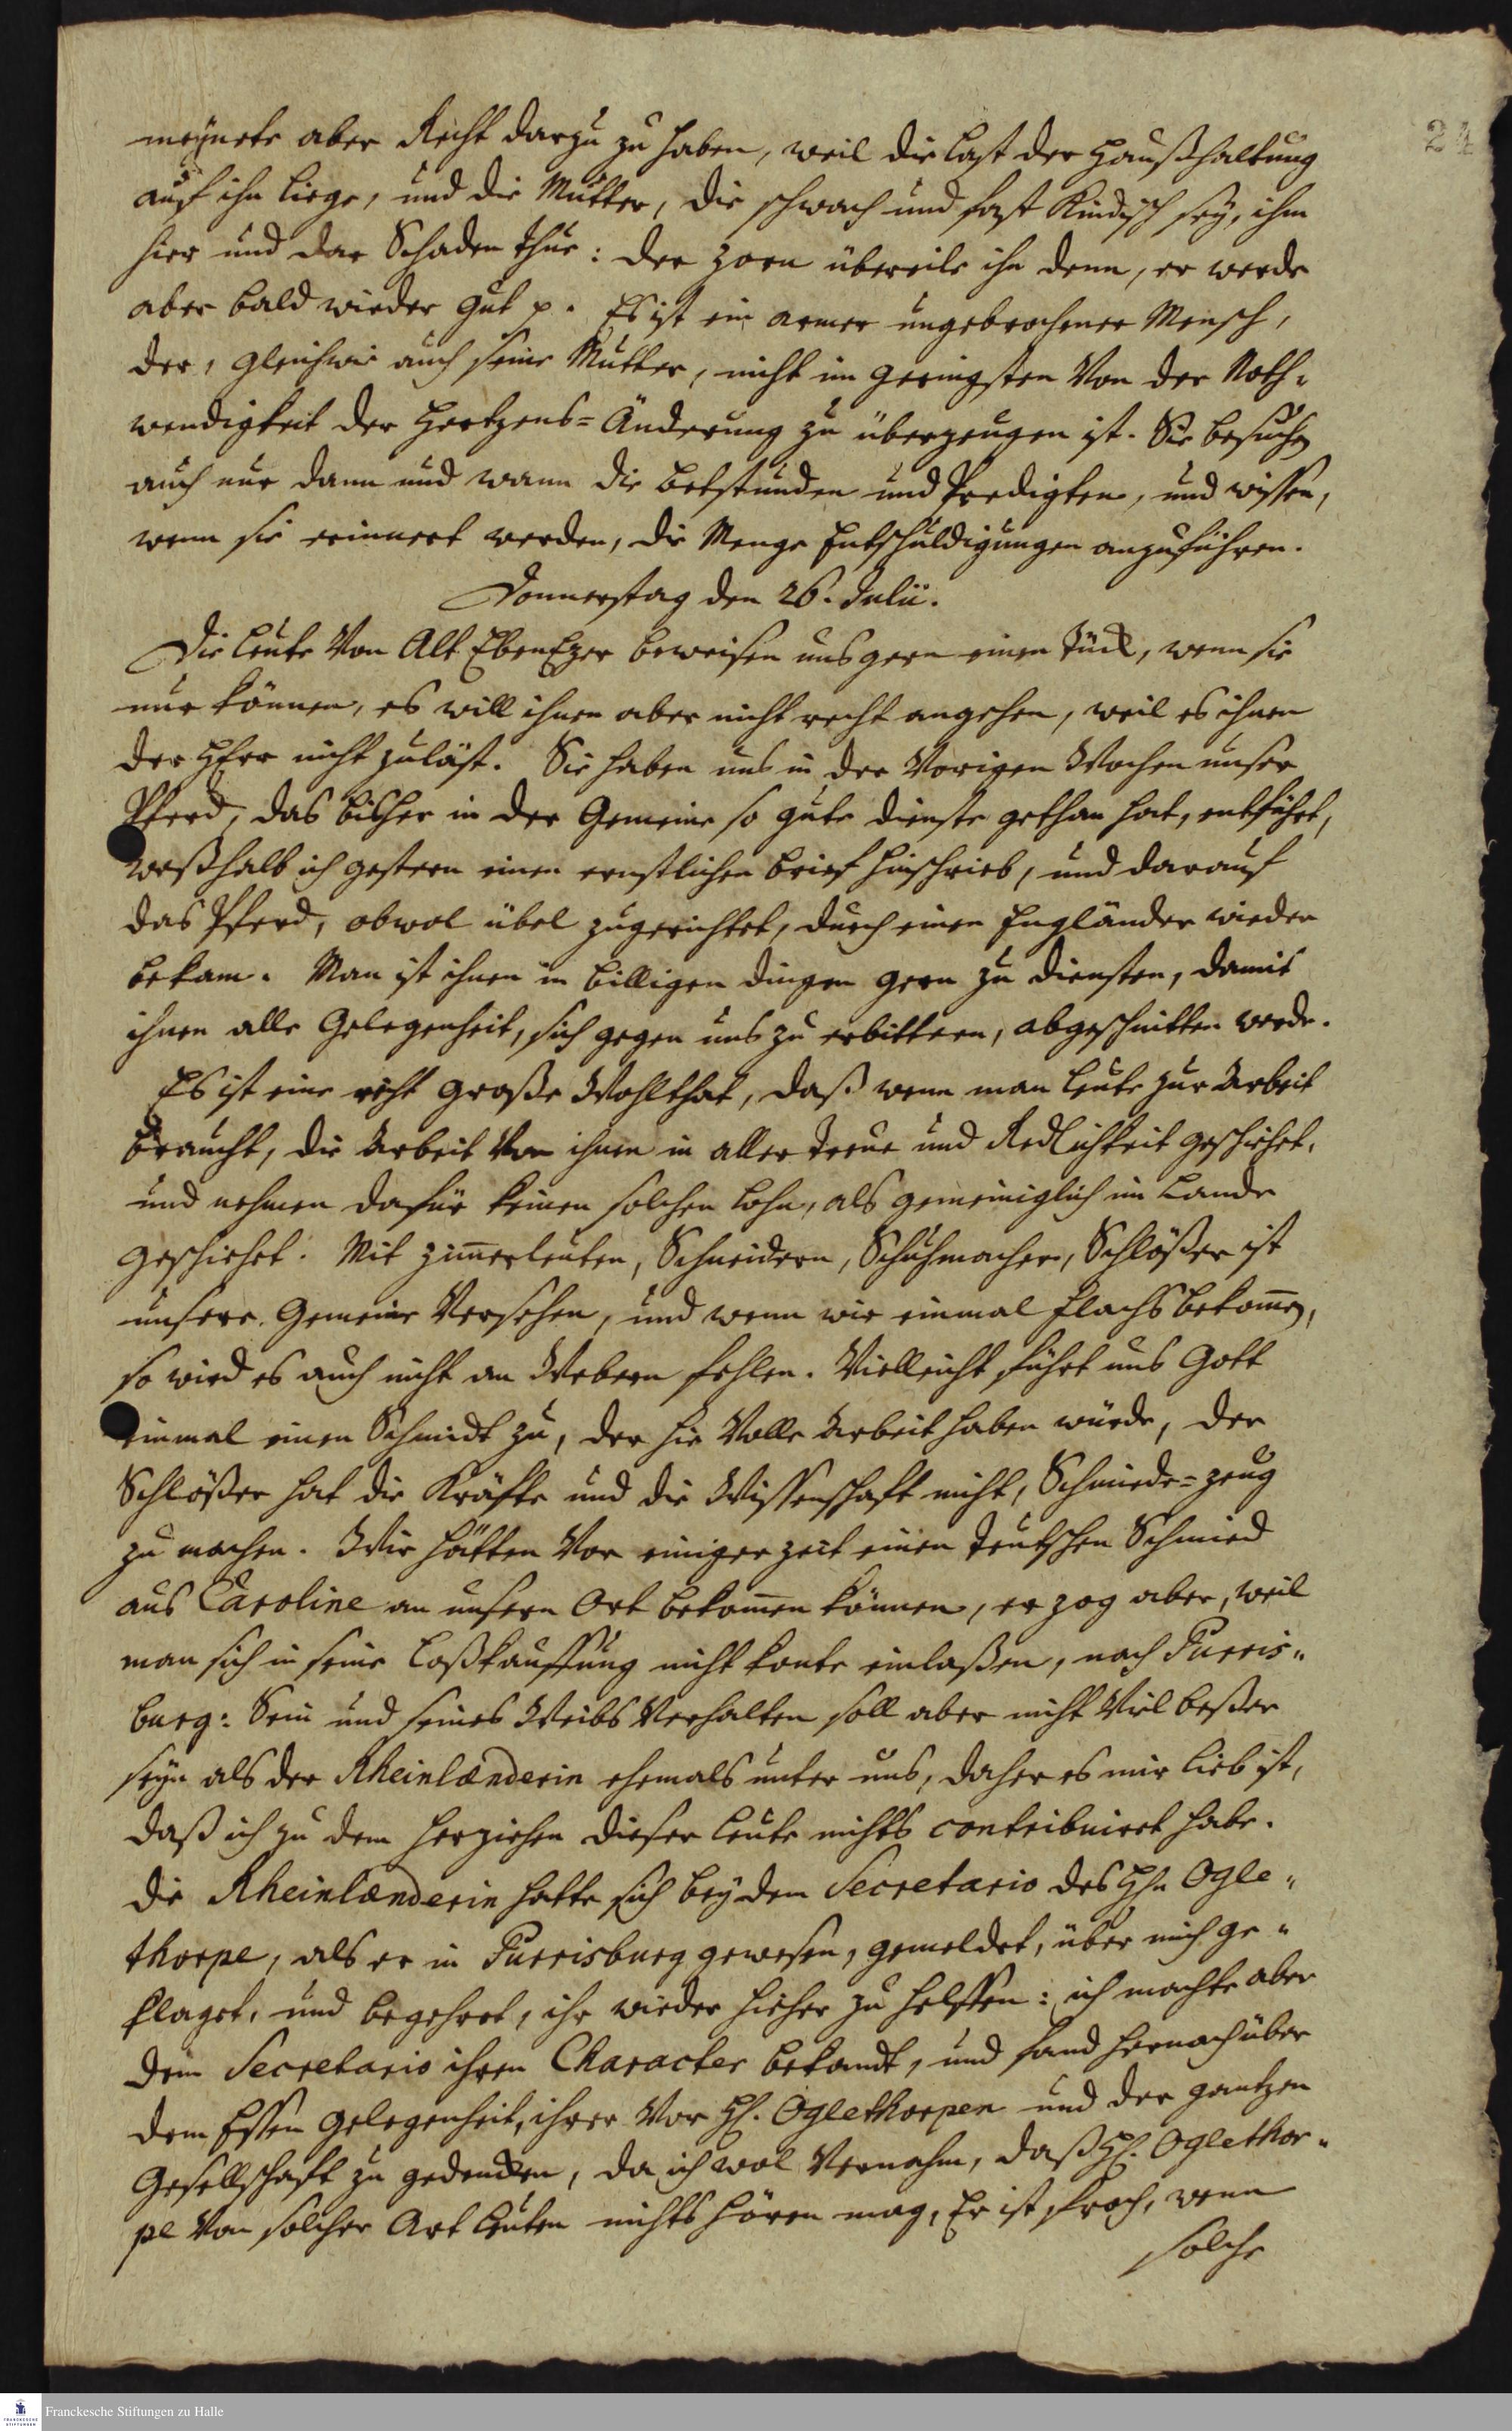 24
meynete aber Recht darzu zu haben, weil die Last der Haußhaltung
auf ihn liege, und die Mutter, die schwach und fast Kindisch sey, ihm
hier und dar Schaden thue: der Zorn übereile ihn denn, er werde
aber bald wieder gut p. Es ist ein armer ungebrochener Mensch,
der, gleichwie auch seine Mutter, nicht im geringsten Von der Noth-
wendigkeit der Hertzens-Änderung zu überzeugen ist. Sie besuchen
auch nur dann und wann die Betstunden und Predigten, und wissen,
wenn sie erinnert werden, die Menge Entschuldigungen anzuführen.
Donnerstag den 26. Julii.
Die Leute Von Alt EbenEzer beweisen uns gern einen Tück, wenn sie
nur können, es will ihnen aber nicht recht angehen, weil es ihnen
der HErr nicht zuläst. Sie haben uns in der Vorigen Wochen unser
Pferd, das bisher in der Gemeine so gute dienste gethan hat, entführt,
weßhalb ich gestern einen ernstlichen Brief hinschrieb, und darauf
das Pferd, obwol übel zugerichtet, durch einen Engländer wieder
bekam. Man ist ihnen in billigen dingen gern zu diensten, damit
ihnen alle Gelegenheit, sich gegen uns zu erbittern, abgeschnitten werde.
Es ist eine recht große Wohlthat, daß wenn man Leute zur Arbeit
braucht, die Arbeit Von ihnen in aller Treue und Redlichkeit geschiehet,
und nehmen dafür keinen solchen Lohn, als gemeiniglich im Lande
geschiehet. Mit Zimerleuten, Schneidern, Schuhmacher, Schlößer ist
unsere Gemeine Versehen, und wenn wir einmal Flachs bekomen,
so wird es auch nicht an Webern fehlen. Vielleicht führt uns Gott
einmal einen Schmidt zu, der hie Volle Arbeit haben würde, der
Schlößer hat die Kräfte und die Wissenschaft nicht, Schmiede-zeug
zu machen. Wir hätten Vor einiger Zeit einen Teutschen Schmied
aus Caroline an unsern Ort bekomen können, er zog aber, weil
man sich in seine Loßkauffung nicht konte einlaßen, nach Purris-
burg: Sein und seines Weibs Verhalten soll aber nicht Viel beßer
seyn als der Rheinlænderin ehemals unter uns, daher es mir lieb ist,
daß ich zu dem herziehen dieser Leute nichts contribuiret habe.
Die Rheinlænderin hatte sich bey dem Secretario des Hn Ogle-
thorpe, als er in Purrisburg gewesen, gemeldet, über mich ge-
klaget, und begehret, ihr wieder hieher zu helffen: ich machte aber
dem Secretario ihren Character bekandt, und fand hernach über
dem Essen Gelegenheit, ihrer Vor H. Oglethorpen und der gantzen
Gesellschaft zu gedencken, da ich wol Vernahm, daß H. Oglethor-
pe Von solcher Art Leuten nichts hören mag, Er ist froh, wenn
solche
Franckesche Stiftungen zu Halle